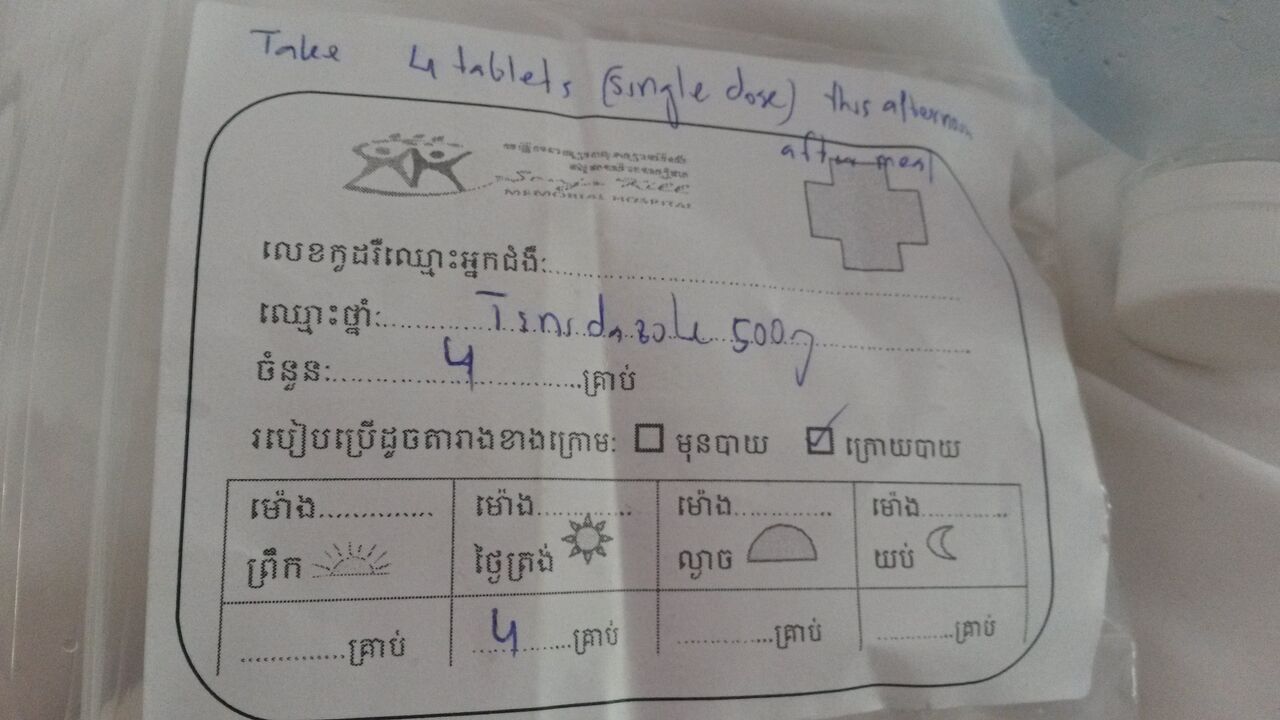 Take 4 tablets (single dose) this afternoon
after meal
MEMORIAL HOSPITAL
លេខកូដរឺឈ្មោះអ្នកជំងឺ:
ឈ្មោះថ្នាំ: Tinidazole 500g
ចំនួន: 4 គ្រាប់
របៀបប្រើដូចតារាងខាងក្រោម: មុនបាយ ក្រោយបាយ
ម៉ោង ម៉ោង ម៉ោង ម៉ោង
ព្រឹក ថ្ងៃត្រង់ ល្ងាច យប់
គ្រាប់ 4 គ្រាប់ គ្រាប់ គ្រាប់